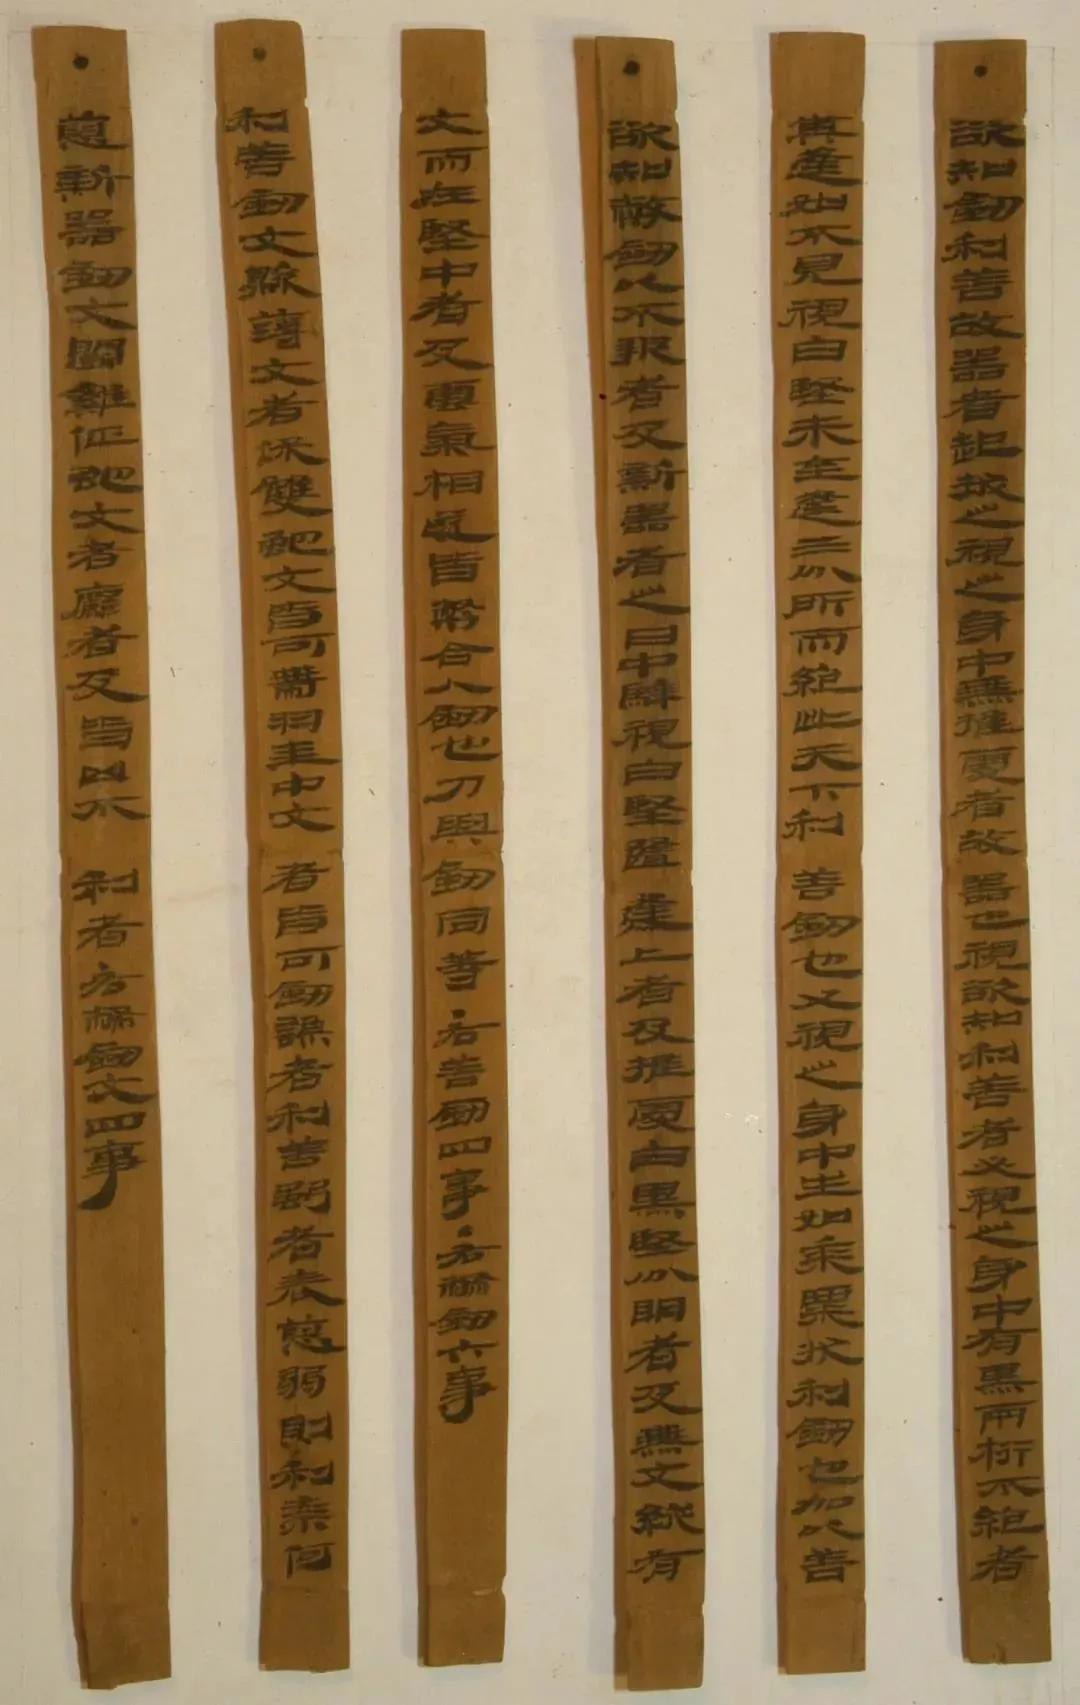 欲知劍利善故器者起拔之視之身中無推處者故器也視欲知利善者必視之身中有黑兩桁不絕者
其逢如不見視白堅未至逢三分所而絕此天下利善劍也又視之身中生如黍粟狀利劍也加以善
欲知幣劍以不報者及新器者之日中騂視白堅隨逢上者及推處白黑堅分明者及無文縱有
文而在堅中者及雲氣相遂皆幣合人劍也刀與劍同等·右善劍四事·右幣劍六事
利善劍文縣薄文者保雙蛇文皆可帶羽圭中文者皆可劍謙者利善強者表恿弱則利奈何
恿新器劍文鬭雞佂蛇文者麤者及皆凶不利者右幣劍文四事